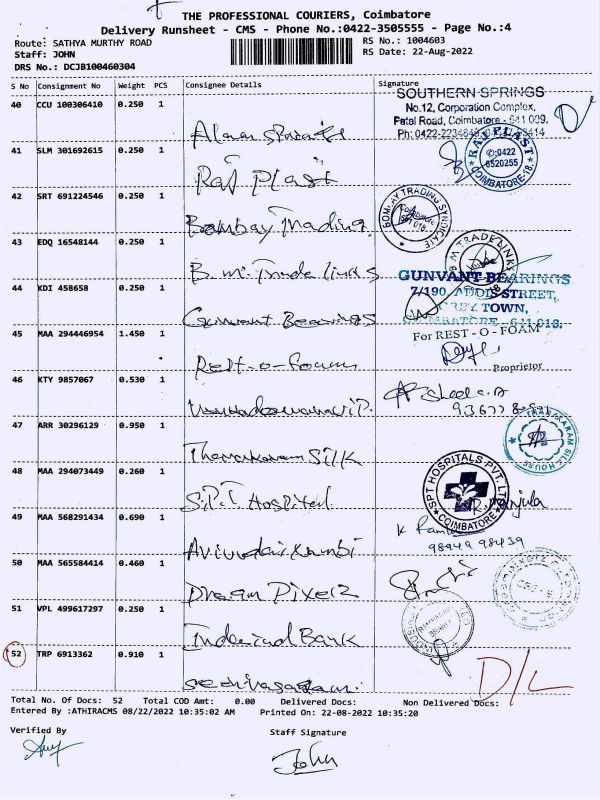 THE PROFESSIONAL COURIERS, Coimbatore
Delivery Runsheet - CMS - Phone No.:0422-3505555 - Page No.:4
Route: SATHYA MURTHY ROAD
RS No.: 1004603
Staff: JOHN
RS Date: 22-Aug-2022
DRS No.: DCJB100460304
S No Consignment No Weight PCS Consignee Details Signature
40 CCU 100306410 0.250 1
SOUTHERN SPRINGS
No.12, Corporation Complex,
Patel Road, Coimbatore - 641 009.
Ph: 0422-
41 SLM 301692615 0.250 1
Raj Plast
RAJ PLAST
✆:0422
6520255
COIMBATORE-18.
42 SRT 691224546 0.250 1
Bombay Trading
BOMBAY TRADING SYNDICATE
43 EDQ 16548144 0.250 1
B.M. Trade links
B M TRADE LINKS
44 KDI 458658 0.250 1
Gunvant Bearings
GUNVANT BEARINGS
7/190, ADDIS STREET,
GREY TOWN,
COIMBATORE - 641 018.
45 MAA 294446954 1.450 1
Rest-o-Foam
For REST - O - FOAM
Proprietor
46 KTY 9857067 0.530 1
47 ARR 30296129 0.950 1
Tharakaram Silk
THARAKARAM SILK HOUSE
48 MAA 294073449 0.260 1
S.P.T. Hospital
SPT HOSPITALS PVT. LTD
COIMBATORE
49 MAA 568291434 0.690 1
98949 98439
50 MAA 565584414 0.460 1
Dream Pixelz
51 VPL 499617297 0.250 1
Indusind Bank
52 TRP 6913362 0.910 1
D/L
Total No. Of Docs: 52 Total COD Amt: 0.00 Delivered Docs: Non Delivered Docs:
Entered By :ATHIRACMS 08/22/2022 10:35:02 AM Printed On: 22-08-2022 10:35:20
Verified By
Staff Signature
John